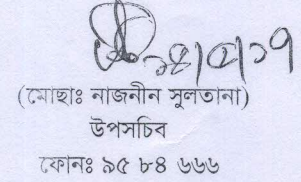 (মোছাঃ নাজনীন সুলতানা)
উপসচিব
ফোনঃ ৯৫ ৮৪ ৬৬৬